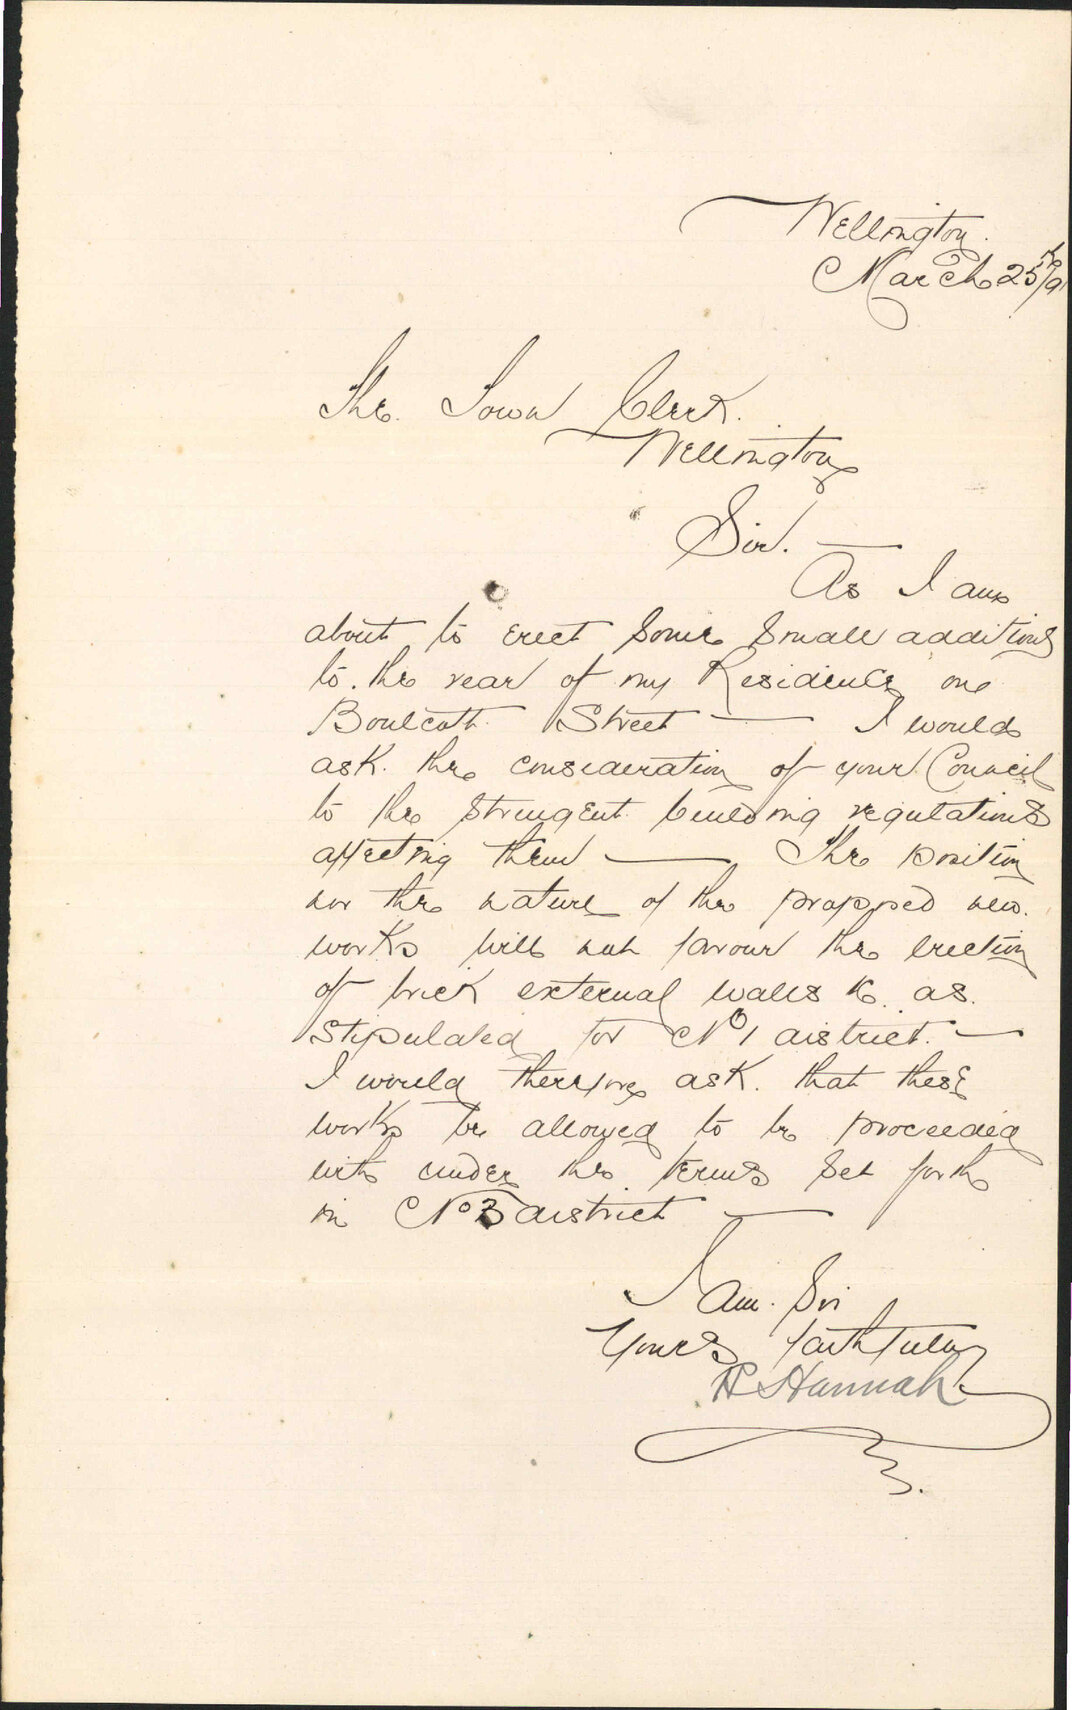 Wellington.
March 25th/9
The. Town Clerk.
Wellington
Sir. —
As I am
about to erect some small additions
to. the rear of my Residence one
Boulcott Street — I would
ask. the consideration of your Council
to the stringent building regulations
affecting them — The position
nor the nature of the proposed new.
works will not favour the erection
of brick external walls &c. as.
stipulated for No 1 district. —
I would therefore ask. that these
works be allowed to be proceeded
with under the terms set forth
in No 3 district —
I am. Sir
Yours faithfully
R Hannah.